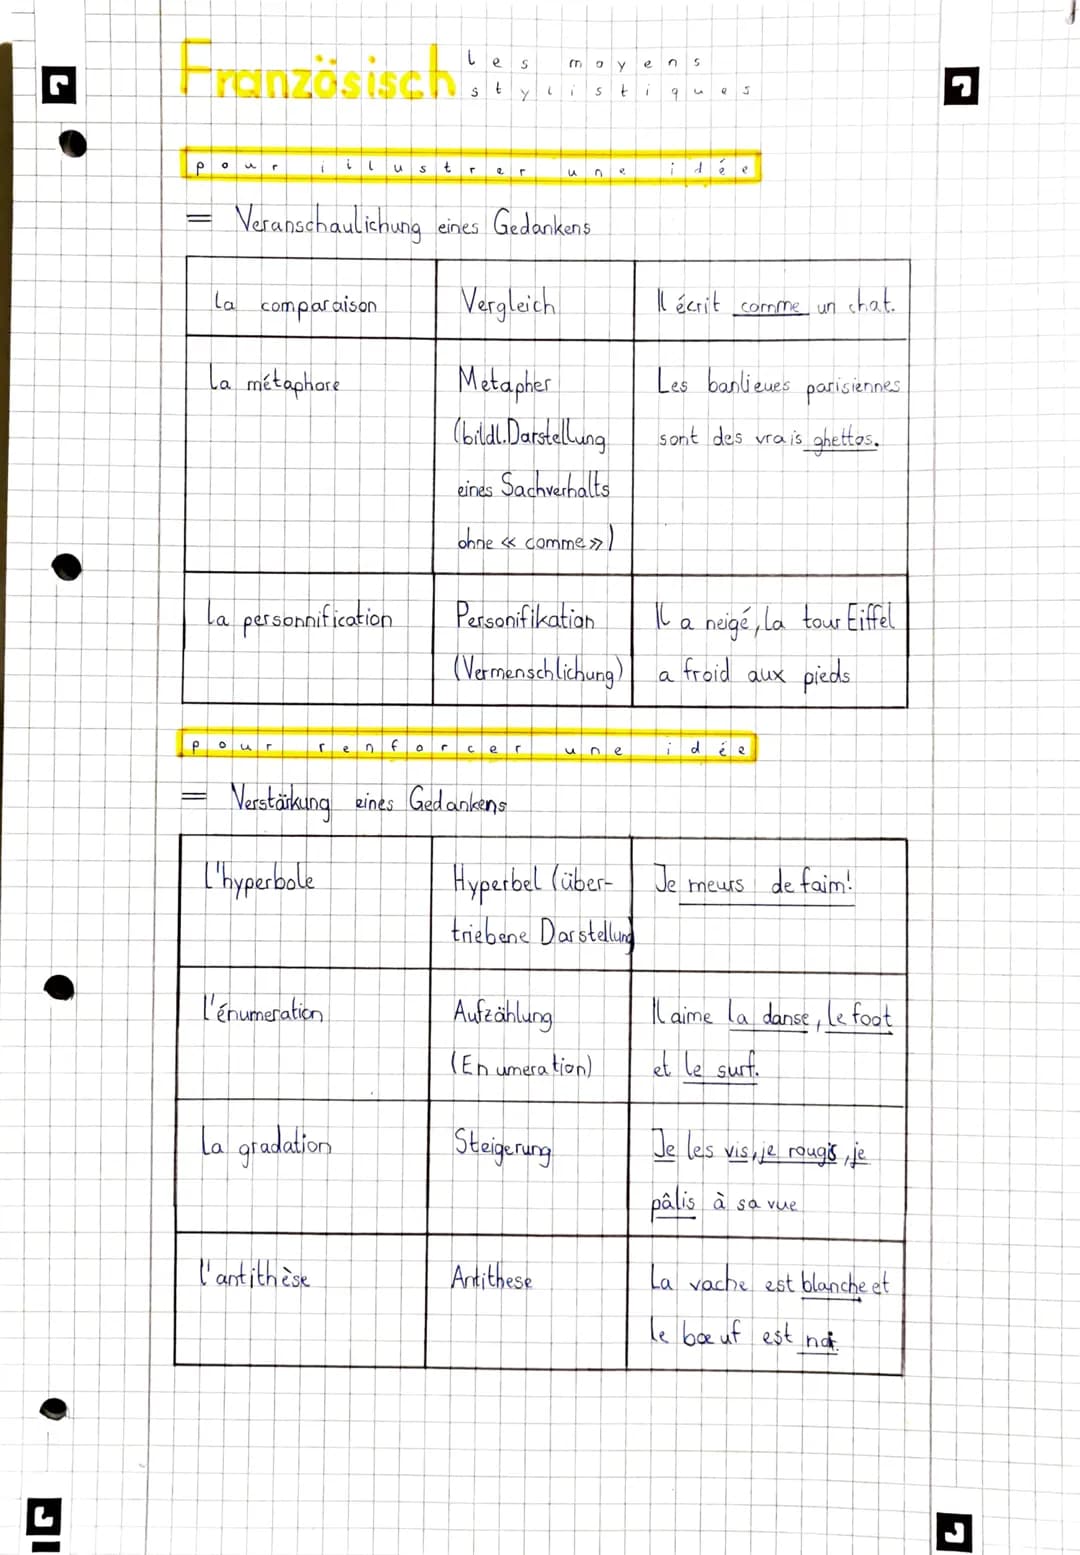 Französisch
les moyens
stylistiques
pour illustrer une idée
= Veranschaulichung eines Gedankens
la comparaison
Vergleich
Il écrit comme un chat.
la métaphore
Metapher
(bildl. Darstellung
eines Sachverhalts
ohne « comme »)
Les banlieues parisiennes
sont des vrais ghettos.
la personnification
Personifikation
(Vermenschlichung)
Il a neigé, la tour Eiffel
a froid aux pieds
pour renforcer une idée
= Verstärkung eines Gedankens
l'hyperbole
Hyperbel (über-
triebene Darstellung
Je meurs de faim!
l'énumeration
Aufzählung
(Enumeration)
Il aime la danse, le foot
et le surf.
la gradation
Steigerung
Je les vis, je rougis, je
pâlis à sa vue
l'antithèse
Antithese
La vache est blanche et
le bœuf est